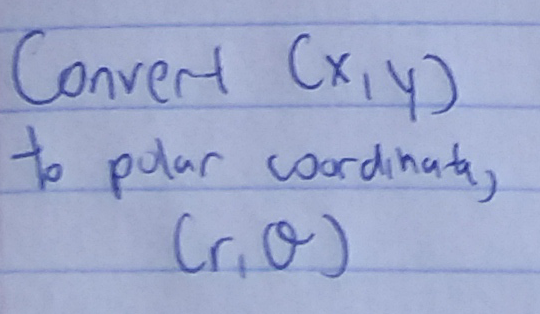 Convert (x, y)
to polar coordinate,
(r, θ)